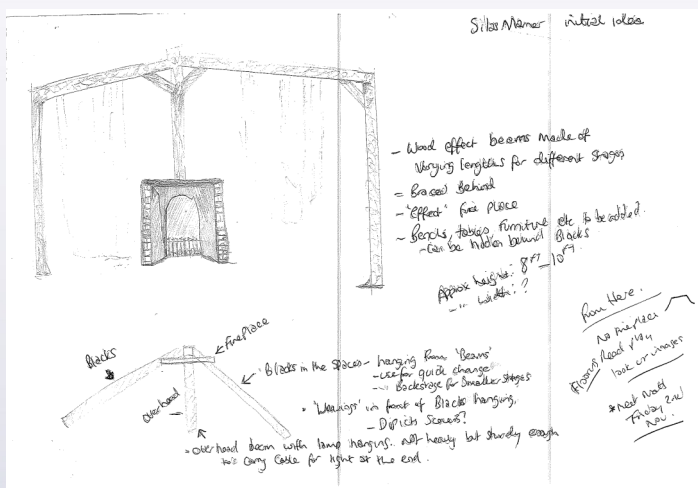 Silas Marner initial idea
- Wood effect beams made of
varying lengths for different stages
= Braced Behind
- 'Effect' fire place
- Bench, tables, furniture etc to be added.
- Can be hidden behind Blacks
Approx height: 8FT - 10FT
-"- width: ?
From Here.
No fireplace
read play
look up images
* Next meet
Friday 2nd
Nov.
Fireplace
Blacks
overhead
* Blacks in the spaces - hanging from 'Beams'
- use for quick change
-"- Backstage for smaller stages
* 'Weavings' in front of Blacks hanging.
- Depict Scenes?
* Overhead beam with lamp hanging. not heavy but sturdy enough
to carry cable for light at the end.